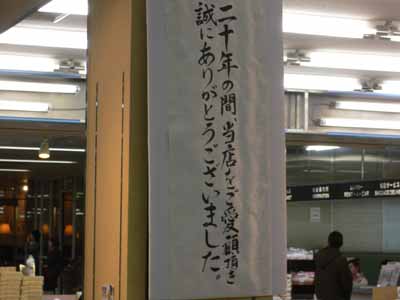 二十年の間、当店をご愛顧頂き
誠にありがとうございました。